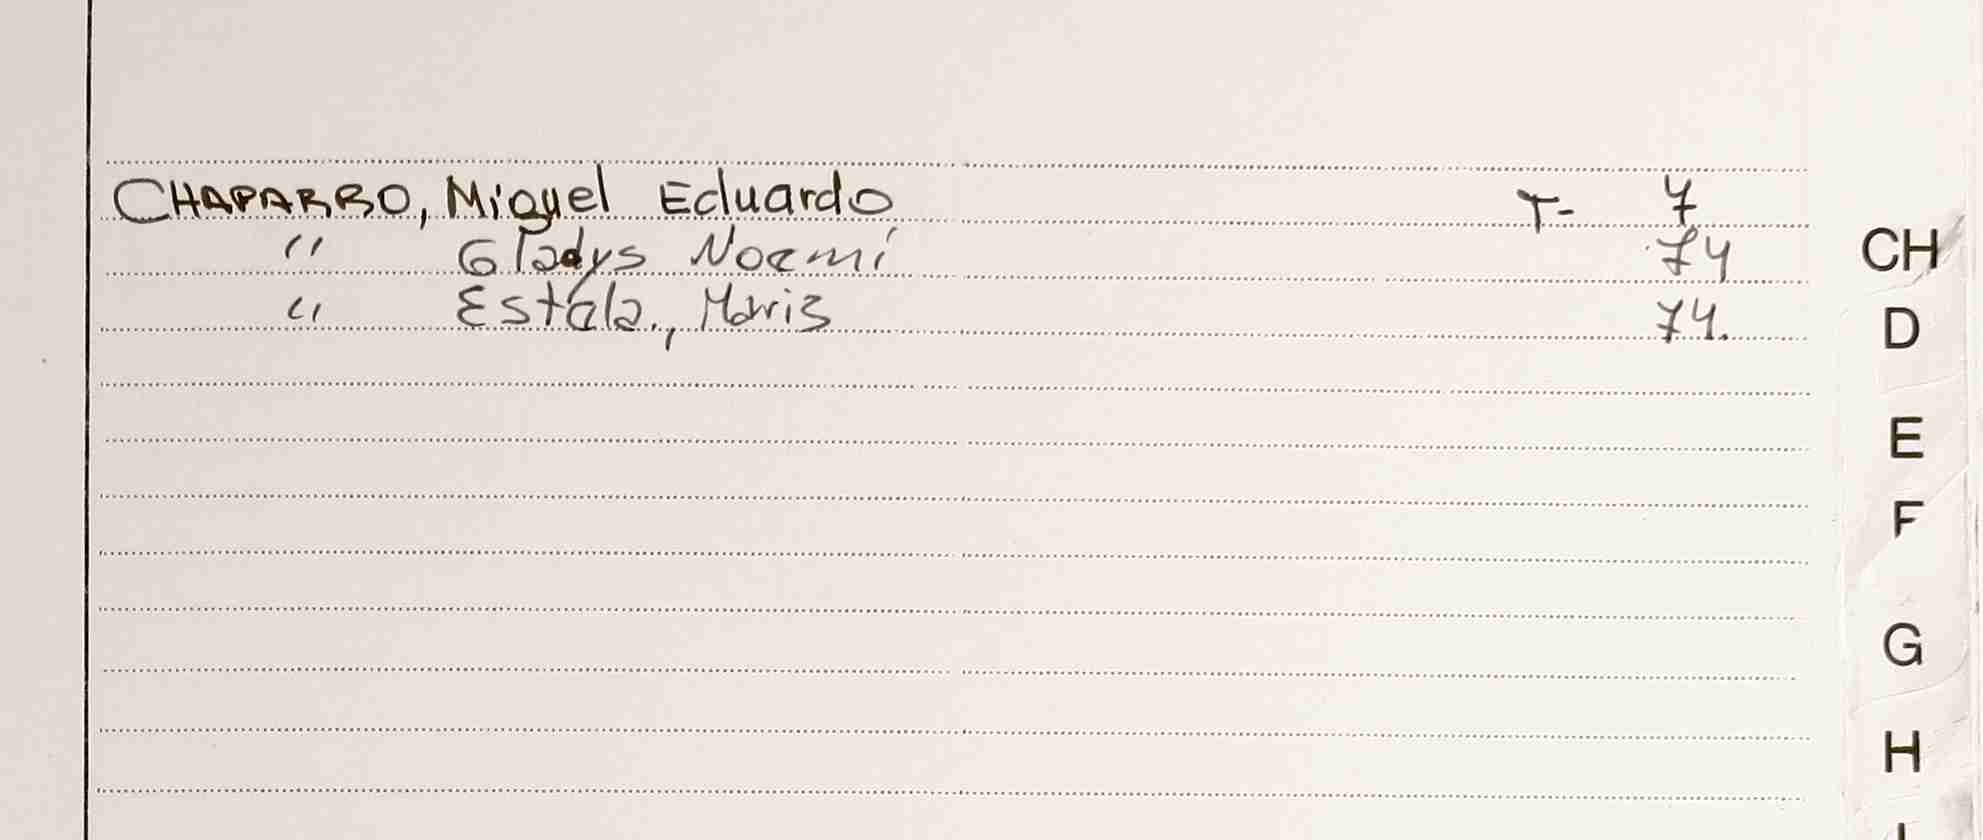 CHAPARRO, Miguel Eduardo T- 7
" Gladys Noemí 74 CH
" Estela, Maris 74.
D
E
F
G
H